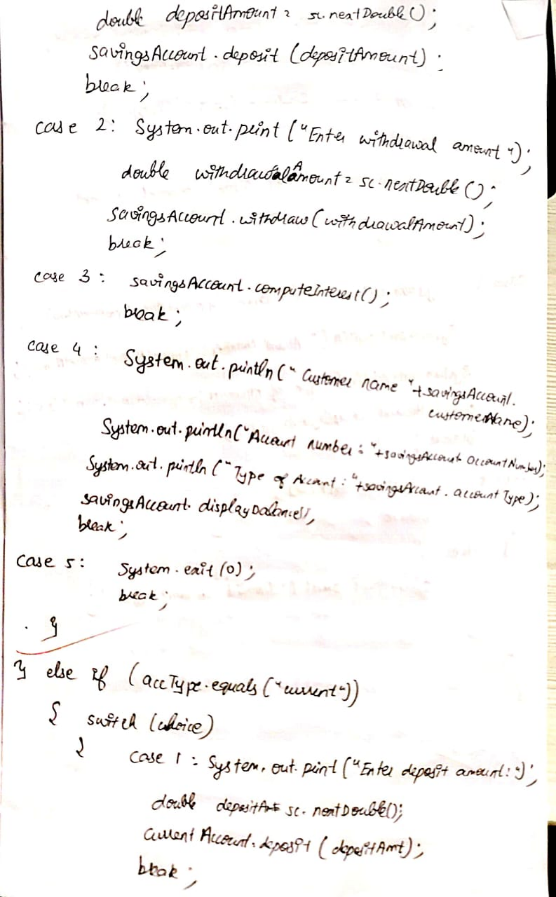 double depositAmount = sc.nextDouble();
savingsAccount.deposit (depositAmount);
break;
case 2: System.out.print ("Enter withdrawal amount ");
double withdrawalAmount = sc.nextDouble();
savingsAccount.withdraw(withdrawalAmount);
break;
case 3: savingsAccount.computeInterest();
break;
case 4: System.out.println(" Customer name "+savingsAccount.
customerName);
System.out.println("Account number: "+savingsAccount.accountNumber);
System.out.println ("Type of Account: "+savingsAccount.accountType);
savingsAccount.displayBalance();
break;
case 5: System.exit(0);
break;
}
} else if (accType.equals("current"))
{ switch (choice)
{
case 1: System.out.print ("Enter deposit amount: ");
double depositAmt = sc.nextDouble();
current Account.deposit (depositAmt);
break;